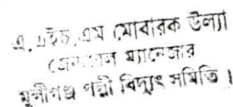 এ, এইচ, এম মোবারক উল্যা
জেনারেল ম্যানেজার
মুন্সীগঞ্জ পল্লী বিদ্যুৎ সমিতি ।